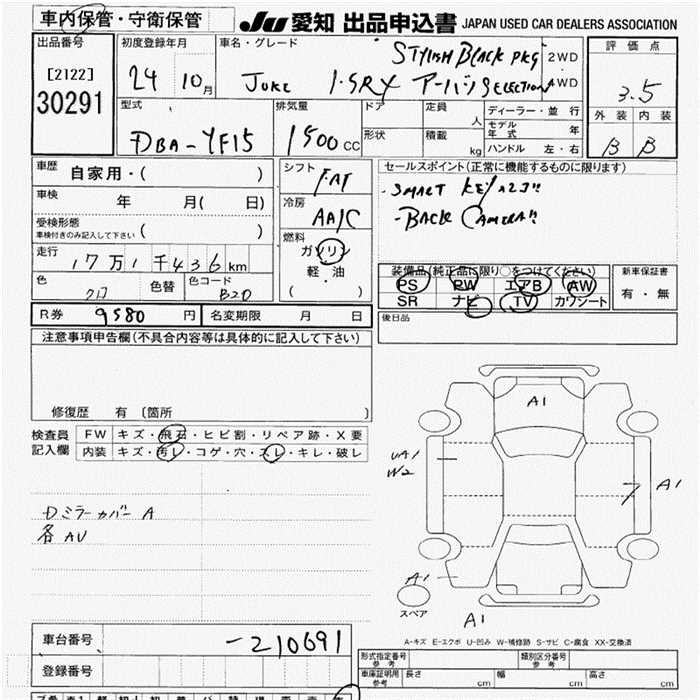 車内保管・守衛保管
JU 愛知 出品申込書 JAPAN USED CAR DEALERS ASSOCIATION
出品番号
[2122]
30291
初度登録年月
24 10月
車名・グレード
STYLISH BLACK PKG
JUKE 1.5RX アーバンSELECTION
2WD
4WD
評価点
3.5
外装 内装
B B
型式
DBA-YF15
排気量
1500cc
ドア
形状
定員 人
積載 kg
ディーラー・並行
モデル年式 年
ハンドル 左・右
車歴 自家用・( )
車検 年 月( 日)
受検形態
車検付きのみ記入して下さい ( )
走行 17万1千436km
色 クロ 色替 色コード B20
シフト FAT
冷房 AA/C
燃料
ガソリン
軽・油
( ・ )
セールスポイント(正常に機能するものに限ります)
・SMART KEY
・BACK CAMERA
装備品(純正品に限り○をつけてください)
PS PW エアB AW
SR ナビ TV カワシート
新車保証書
有・無
R券 9580円 名変期限 月 日
後日品
注意事項申告欄(不具合内容等は具体的に記入して下さい)
修復歴 有 〔箇所 〕
検査員記入欄
FW キズ・飛石・ヒビ割・リペア跡・X要
内装 キズ・汚レ・コゲ・穴・スレ・キレ・破レ
Dミラーカバー A
各AU
A1
UA1
W2
A1
A1
A1
スペア
A-キズ E-エクボ U-凹み W-補修跡 S-サビ C-腐食 XX-交換済
車台番号 -210691
登録番号
形式指定番号 参考
類別区分番号 参考
車庫証明用 参考 長さ cm 幅 cm 高さ cm